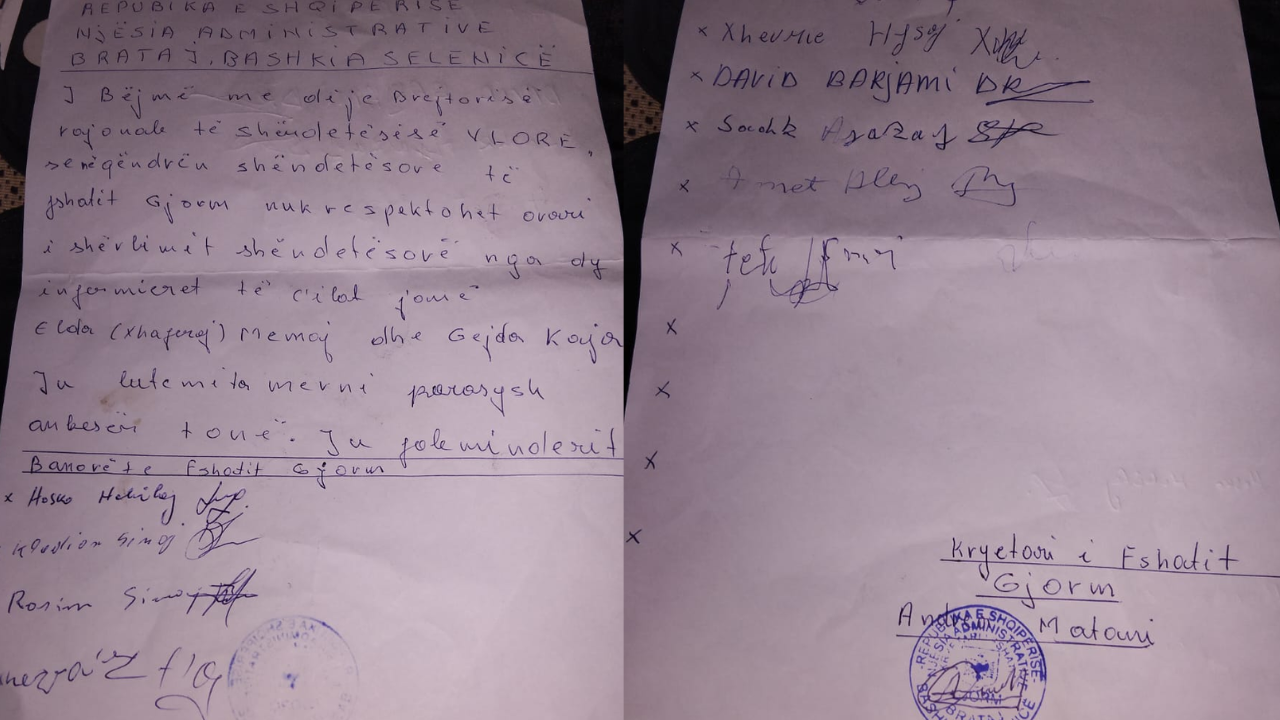 REPUBIKA E SHQIPERISE
NJËSIA ADMINISTRATIVE
BRATAJ, BASHKIA SELENICË
I Bëjmë me dije Drejtorisë
rajonale të shëndetësisë VLORE,
se nëqëndrën shëndetësore të
fshatit Gjorm nuk respektohet orari
i shërbimit shëndetësorë nga dy
infermieret të cilat janë
Elda (Xhaferaj) Memaj dhe Gejda Kaja
Ju lutemi ta merni parasysh
ankesën tonë. Ju faleminderit
Banorët e Fshatit Gjorm
x Hosko
Klodian Sinaj
Rasim Sinaj
x Xhevrie Hysaj
x DAVID BARJAMI
x Sadik
x Amet Aliaj
x
x
x
x
x
Kryetari i Fshatit
Gjorm
Matani
REPUBLIKA E SHQIPERISE
NJESIA ADMINISTRATIVE
GJORM
BRATAJ